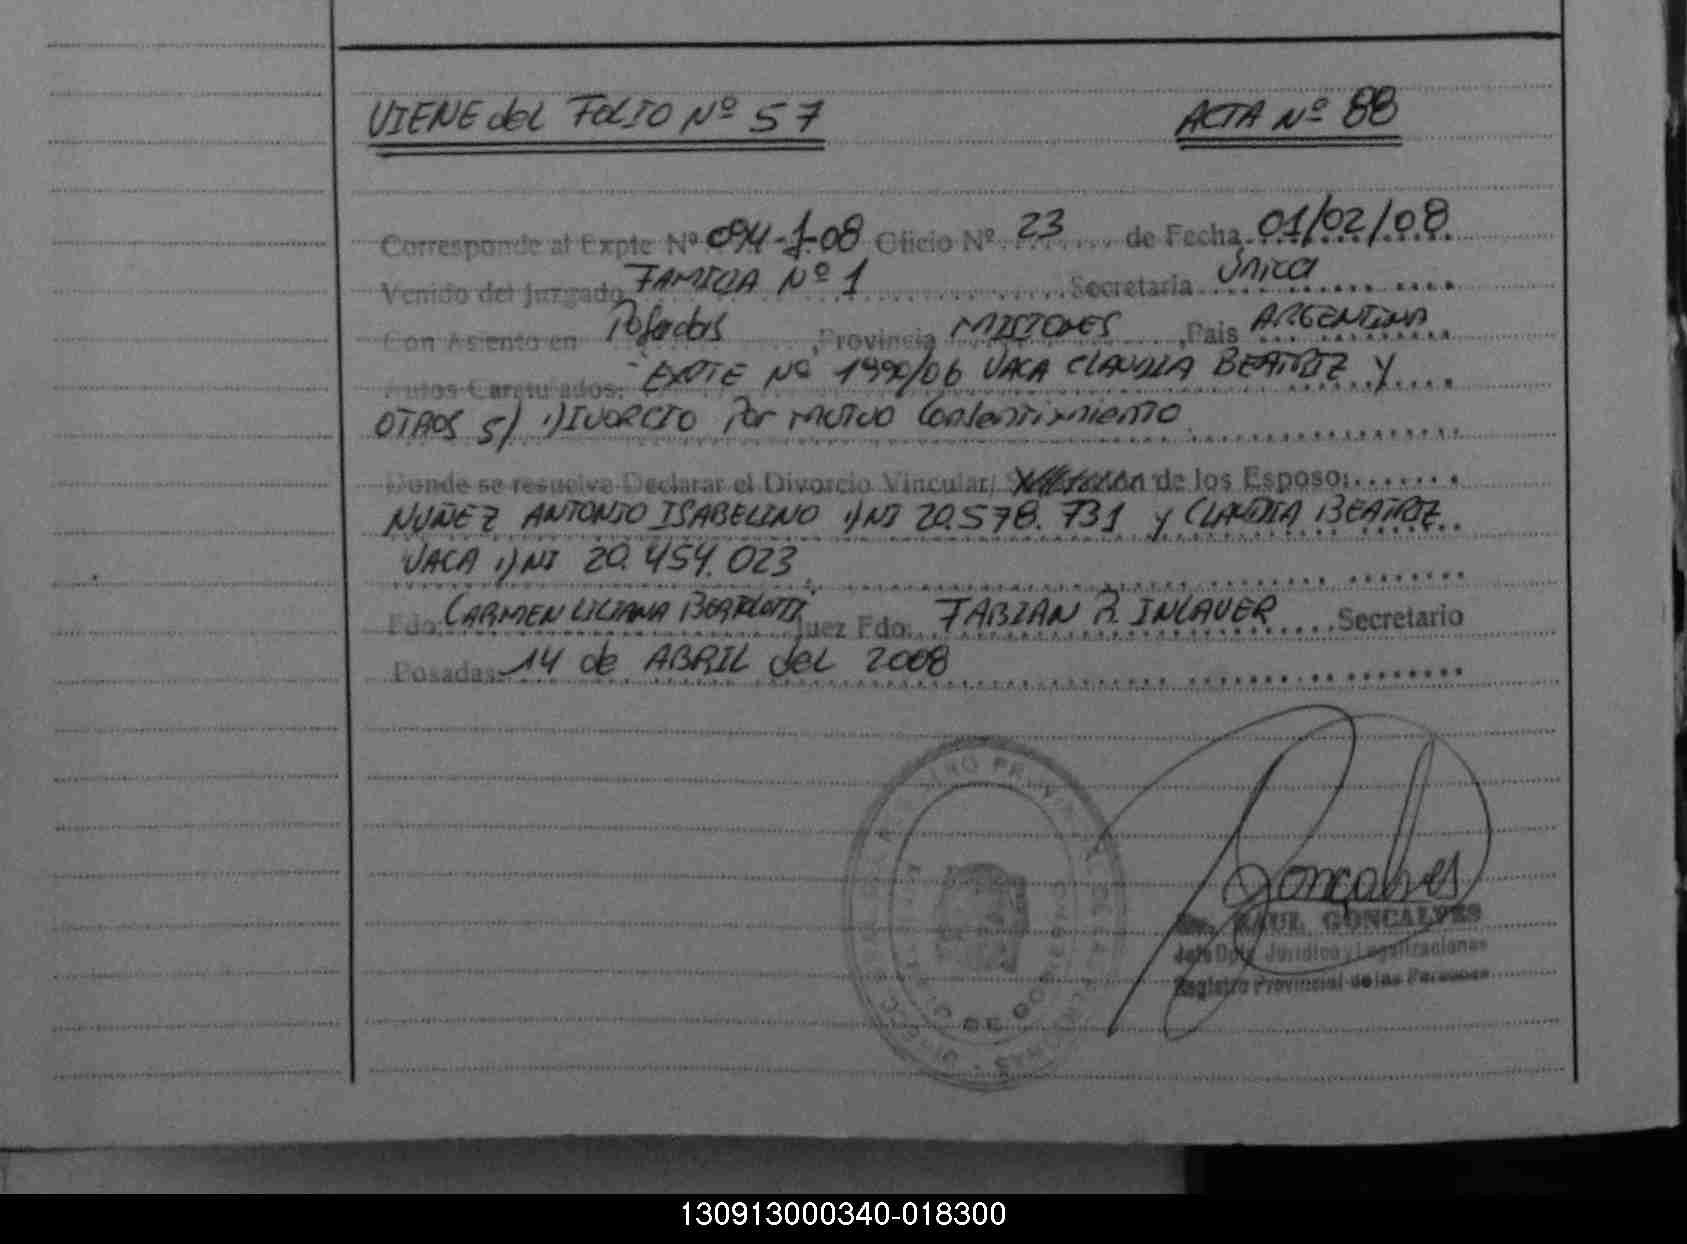 VIENE del FOLIO Nº 57
ACTA Nº 88
Corresponde al Expte Nº 094-J-08 Oficio Nº 23 de Fecha 01/02/08
Venido del Juzgado FAMILIA Nº 1 Secretaria Única
Con Asiento en Posadas, Provincia MISIONES, Pais ARGENTINA
Autos Caratulados: EXPTE Nº 1990/06 VACA CLAUDIA BEATRIZ Y
OTROS S/ DIVORCIO Por MUTUO Consentimiento
Donde se resuelve Declarar el Divorcio Vincular/ de los Esposo:
NUÑEZ ANTONIO ISABELINO DNI 20.578.731 y CLAUDIA BEATRIZ
VACA DNI 20.454.023
Fdo: CARMEN LILIANA Juez Fdo: FABIAN R. INLAUER Secretario
Posadas 14 de ABRIL del 2008
Goncalves
RAUL GONCALVES
Jefe Dpto Jurídico y Legalizaciones
Registro Provincial de las Personas
130913000340-018300